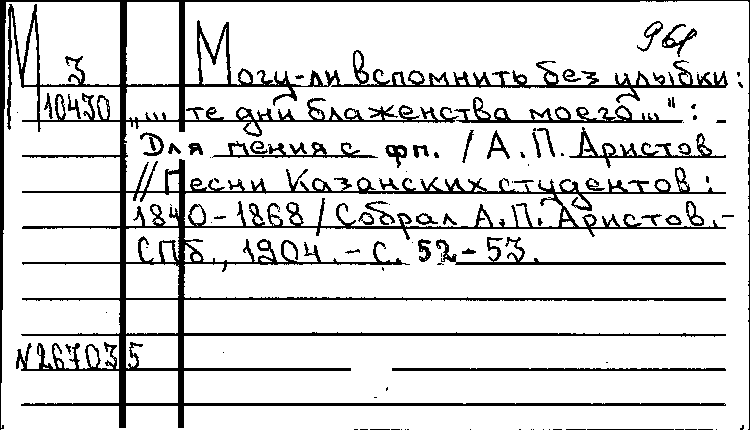 961
М 3 Могу-ли вспомнить без улыбки:
10430 „... те дни блаженства моего..." : -
Для пения с фп. / А.П. Аристов
// Песни Казанских студентов:
1840-1868 / Собрал А.П. Аристов.-
СПб., 1904. - С. 52-53.
N267035